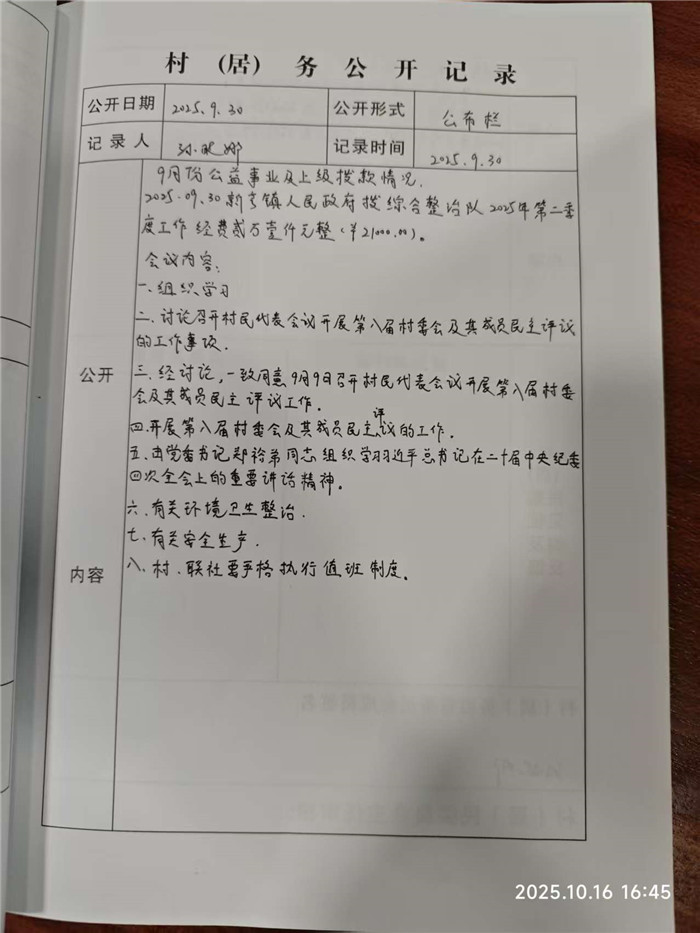 村（居）务公开记录
公开日期 2025.9.30 公开形式 公布栏
记录人 孙 娜 记录时间 2025.9.30
9月份公益事业及上级拨款情况.
2025.09.30新亨镇人民政府拨综合整治队2025年第二季
度工作经费贰万壹仟元整(￥21000.00)。
会议内容:
一.组织学习
二.讨论召开村民代表会议开展第八届村委会及其成员民主评议
的工作事项.
公开
三.经讨论,一致同意9月9日召开村民代表会议开展第八届村委
会及其成员民主评议工作.
四.开展第八届村委会及其成员民主评议的工作.
五.由党委书记郑裕弟同志组织学习习近平总书记在二十届中央纪委
四次全会上的重要讲话精神。
六.有关环境卫生整治.
七.有关安全生产.
内容
八.村、联社要严格执行值班制度。
2025.10.16 16:45